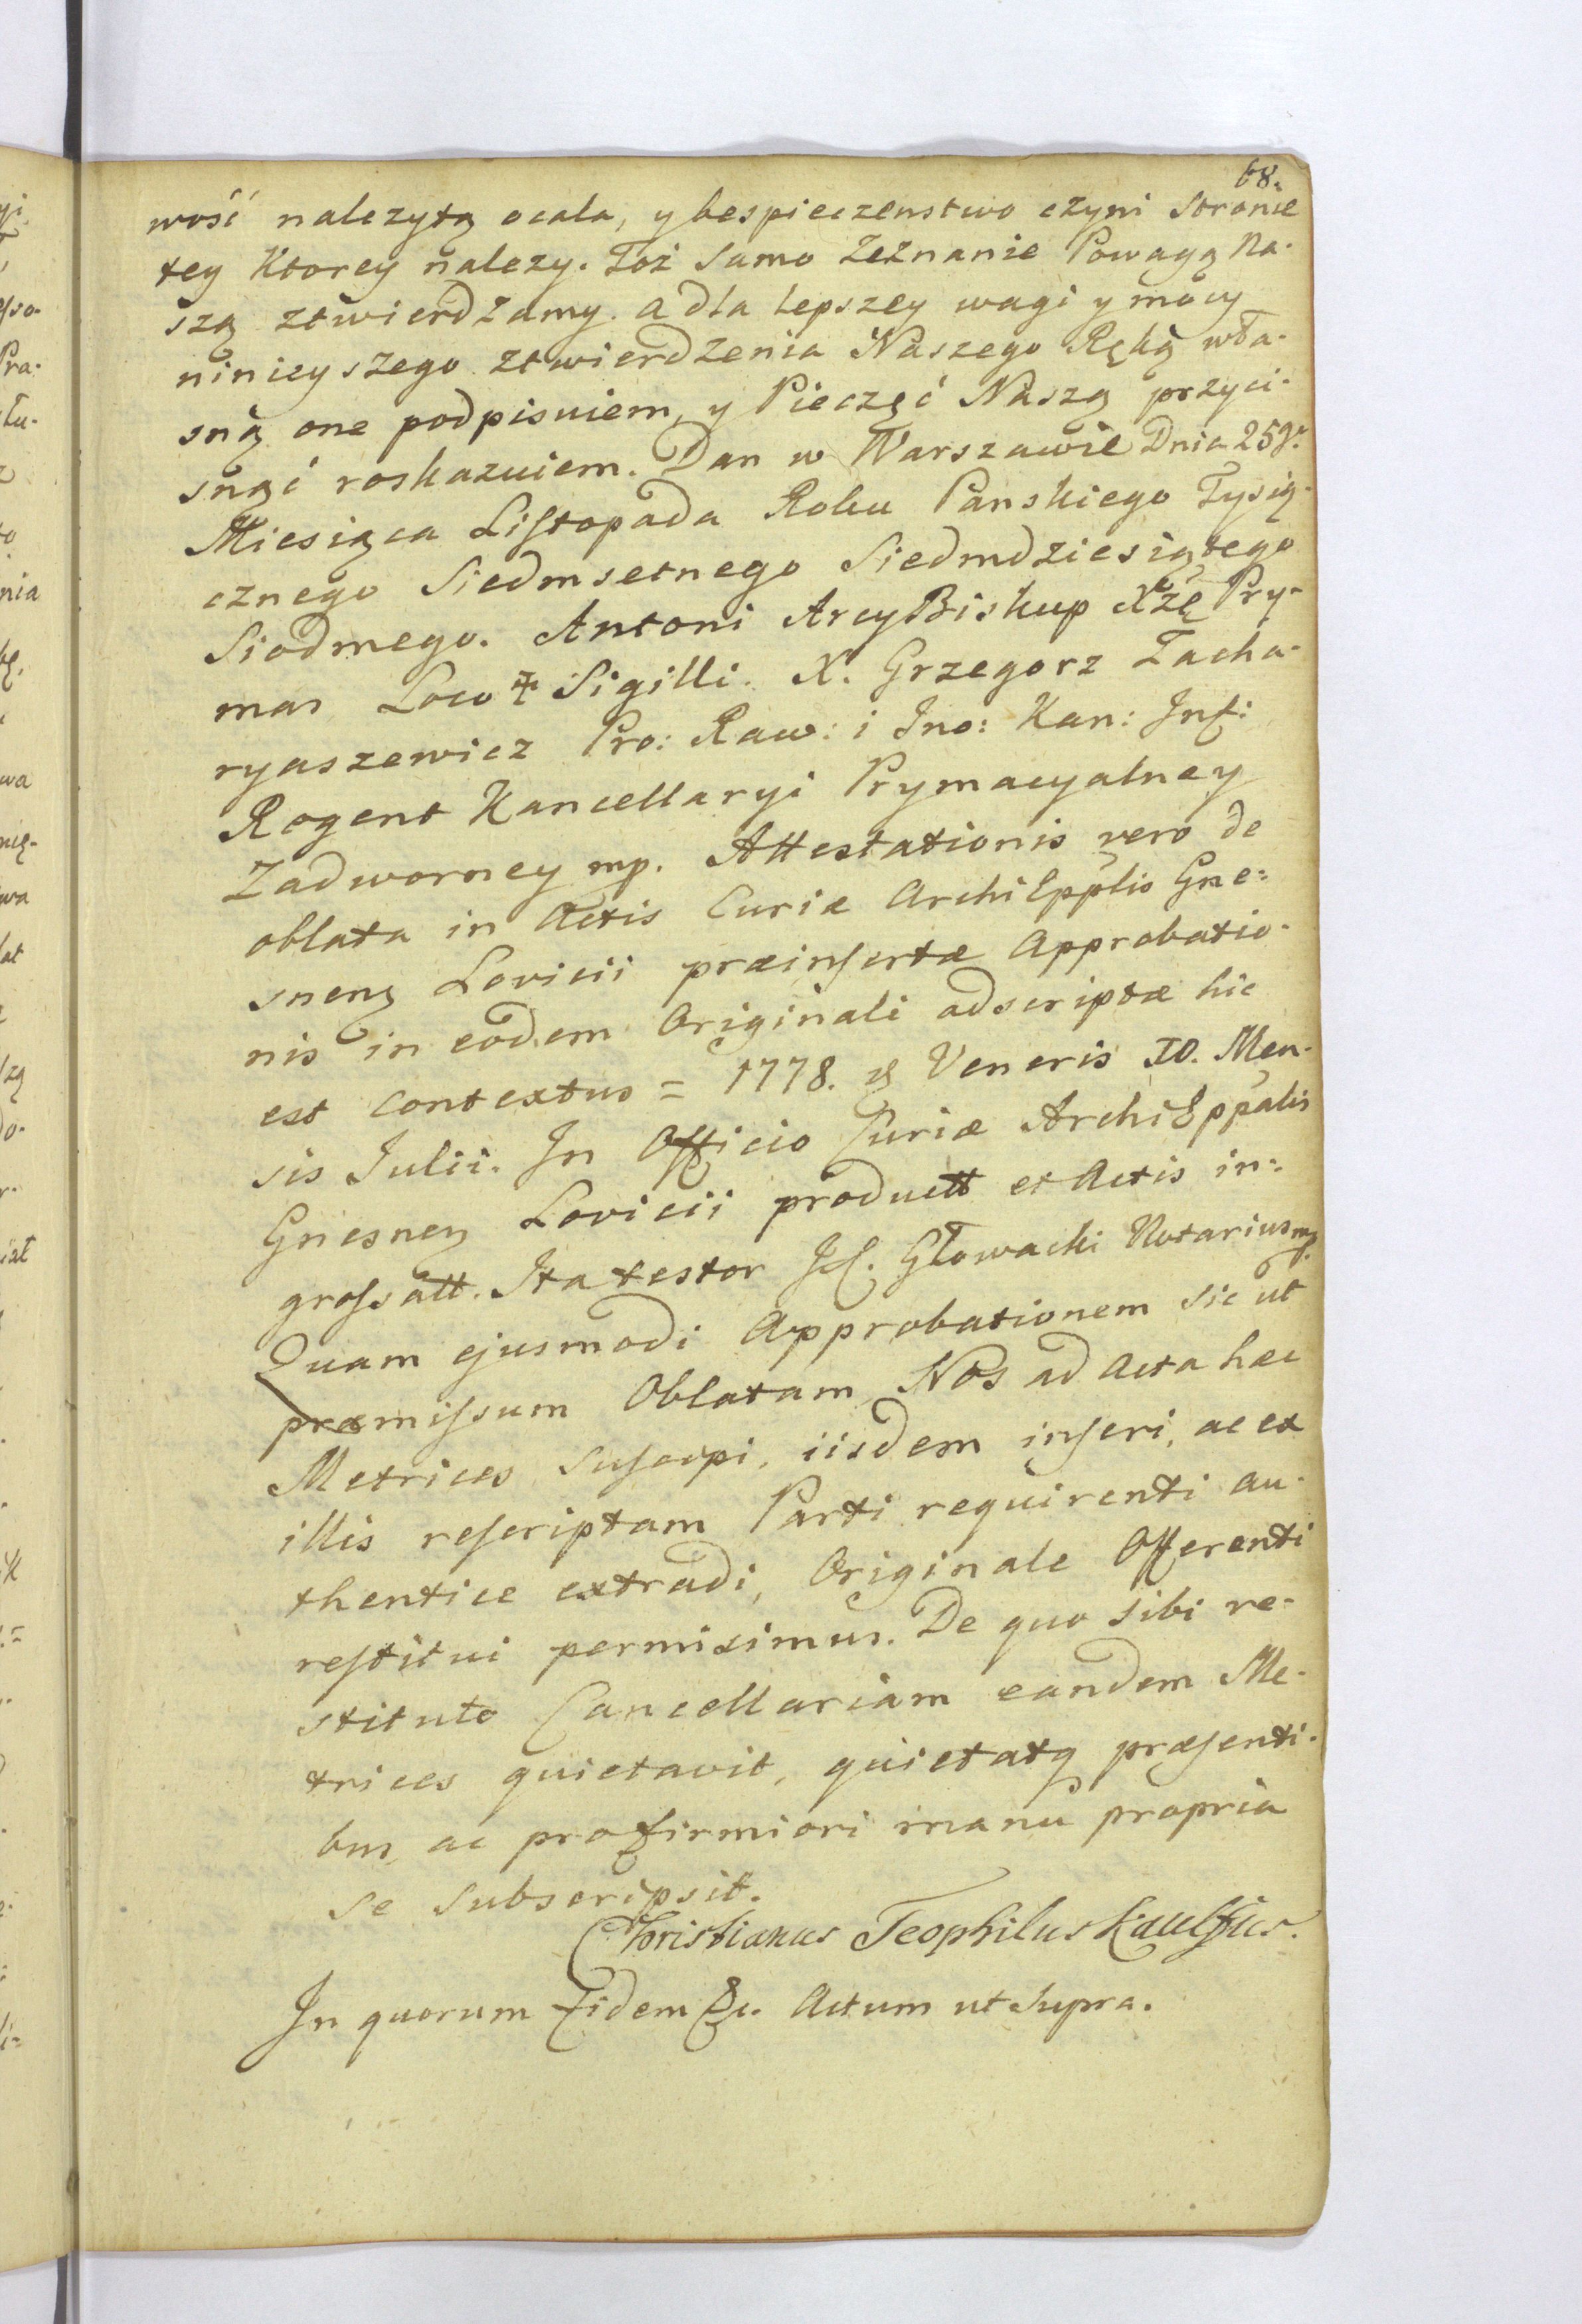 68.
wość nalezytą ocala, y bespieczenstwo czyni Stronie
tey Ktorey nalezy. Toż samo Zeznanie Powagą Na-
szą ztwierdzamy. a dla lepszey wagi y mocy
ninieyszego ztwierdzenia Naszego Ręką wła-
sną one podpisuiem, y Pieczęć Naszą przyci-
snąć roskazuiem. Dan w Warszawie Dnia 25go
Miesiąca Listopada Roku Panskiego Tysią-
cznego Siedmsetnego Siedmdziesiątego
Siodmego. Antoni ArcyBiskup Xżę Pry-
mas Loco ‡ Sigilli. X. Grzegorz Zacha-
ryaszewicz Pro: Raw: i Ino: Kan: Inf:
Regent Kancellaryi Prymacyalney
Zadworney mp. Attestationis vero de
oblata in Actis Curiæ ArchiEpplis Gne-
snen Lovicii præinsertæ Approbatio-
nis in eodem Originali adscriptæ hic
est contextus = 1778. Veneris 10. Men-
sis Julii. In Officio Curiæ ArchiEppalis
Gnesnen Lovicii produtt et Actis in-
grossatt. Ita testor Głowacki Notarius mp.
Quam ejusmodi Approbationem sic ut
præmissum Oblatam, Nos ad Acta hæc
Metrices suscipi, iisdem inseri, ac ex
illis rescriptam Parti requirenti au-
thentice extradi, Originale Offerenti
restitui permisimus. De quo sibi re-
stituto Cancellariam eandem Me-
trices quietavit, quietatq præsenti-
bus, ac pro firmiori manu propria
se subscripsit.
Christianus Teophilus Kaulfus.
In quorum Fidem &c. Actum ut Supra.